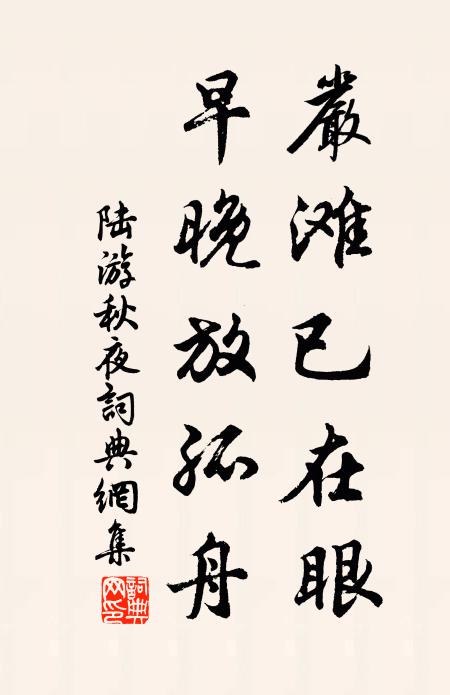 嚴滩已在眼
早晚放孤舟
陆游秋夜詞典網集
詞典网印